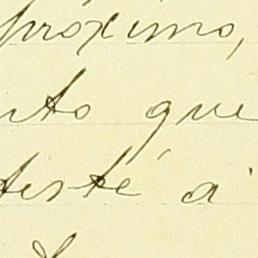 próximo,
uto que
teste á